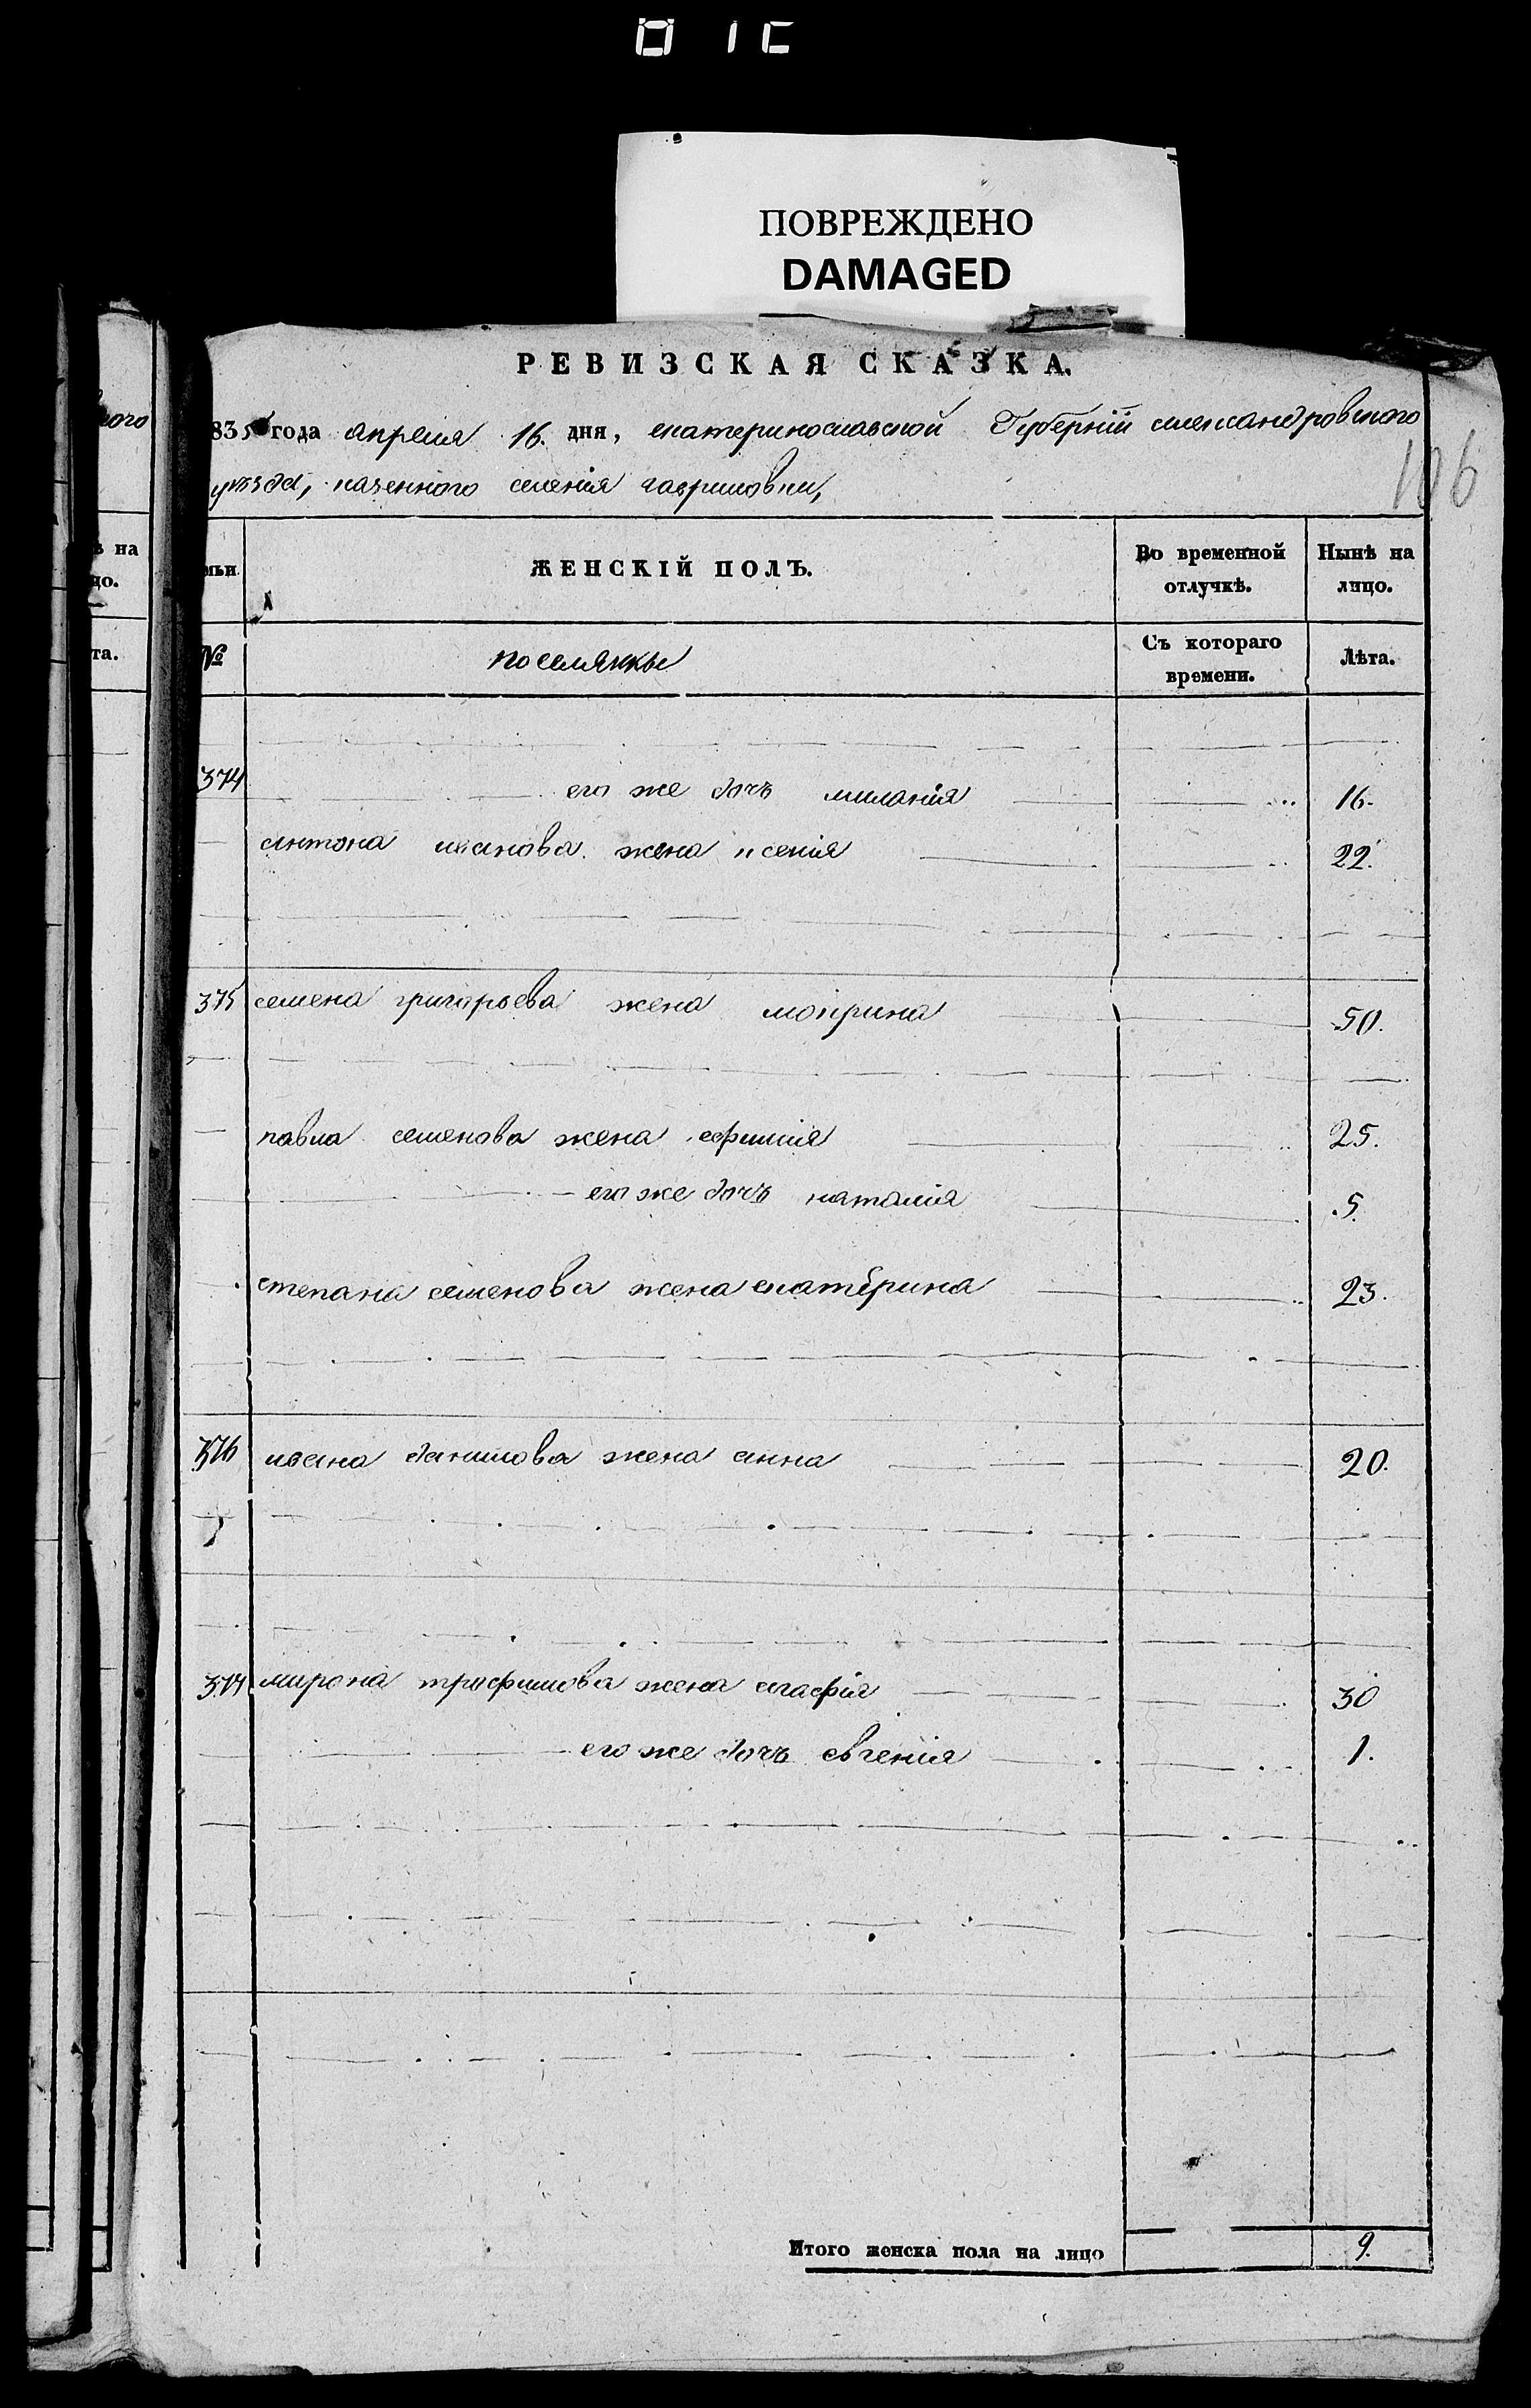 ПОВРЕЖДЕНО
DAMAGED
РЕВИЗСКАЯ СКАЗКА.
835 года апреля 16. дня, екатеринославской Губерніи александровского
уѣзда, казенного селенія гавриловки,
106
ного
ѣ на
цо.
та.
мьи
ЖЕНСКІЙ ПОЛЪ.
Во временной отлучкѣ.
Нынѣ на лицо.
№
поселянки
Съ котораго времени.
Лѣта.
374 его же дочь миланія 16.
антона иванова жена ксенія 22.
375 семена григорьева жена мокрина 50.
павла семенова жена ефимія 25.
его же дочь наталія 5.
степана семенова жена екатерина 23.
376 ивана данилова жена анна 20.
мирона трофимова жена агафія 30
его же дочь евгенія 1.
Итого женска пола на лицо 9.